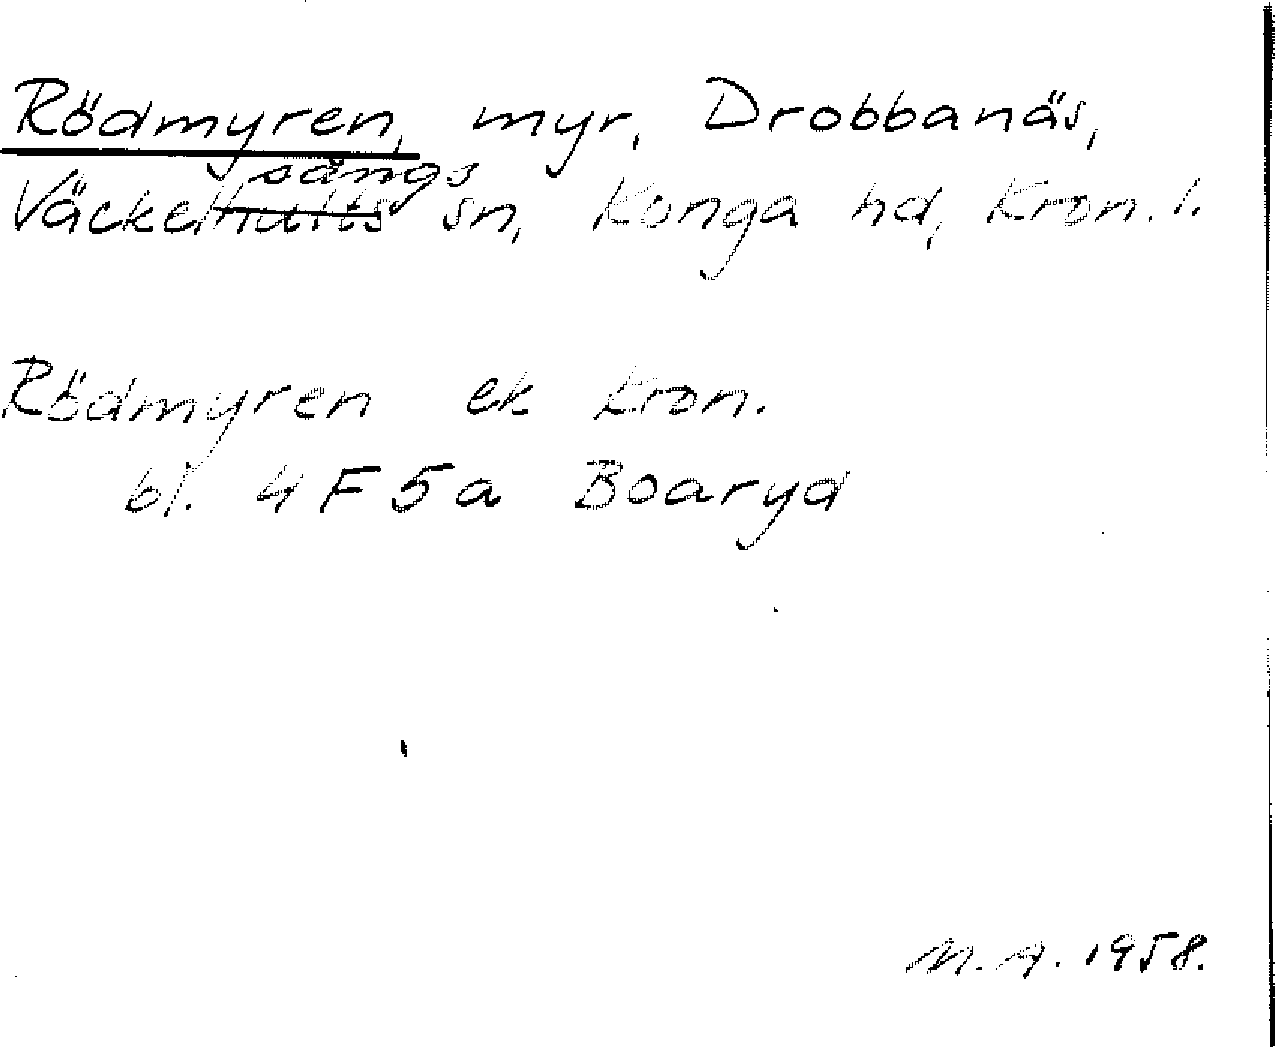 Rödmyren, myr, Drobbanäs,
Väckelsångs sn, Konga hd, Kron. l.
Rödmyren ek Kron.
bl. 4F5a Boaryd
M. A. 1958.